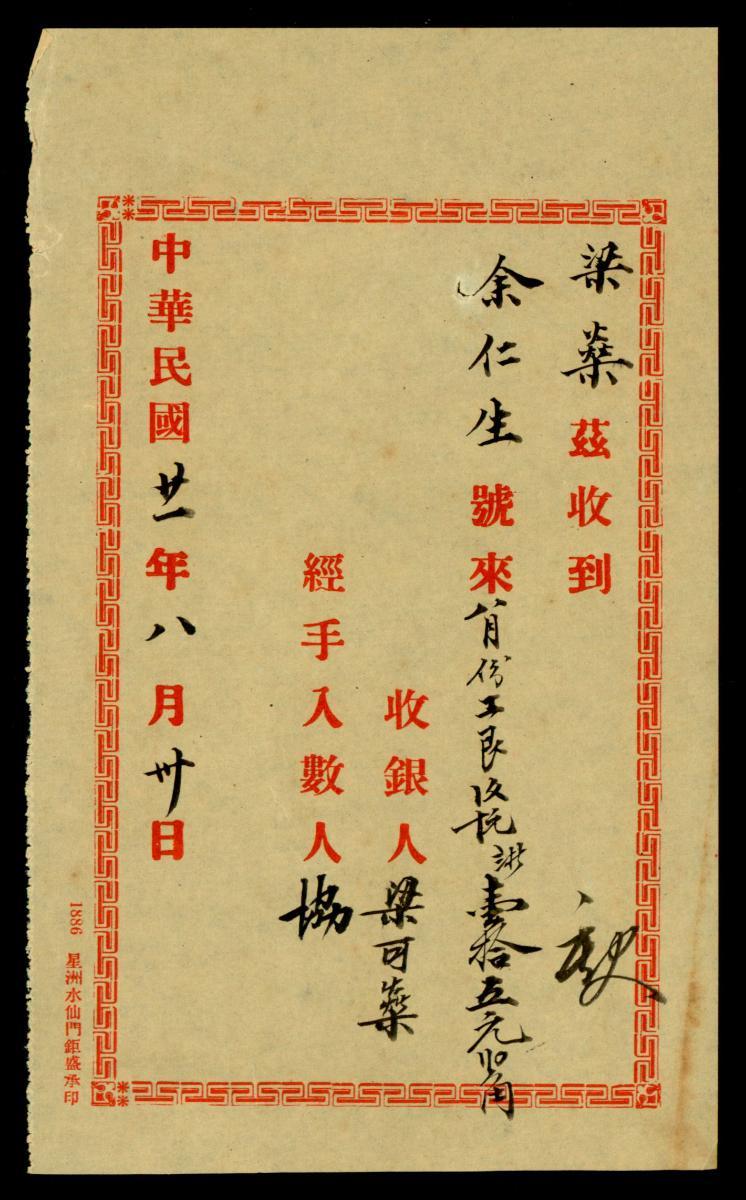 梁燊茲收到
余仁生號來八月份工艮伸 壹拾五元四角
收銀人梁可燊
經手入數人協
中華民國廿一年八月卅日
1886 星洲水仙門鉅盛承印